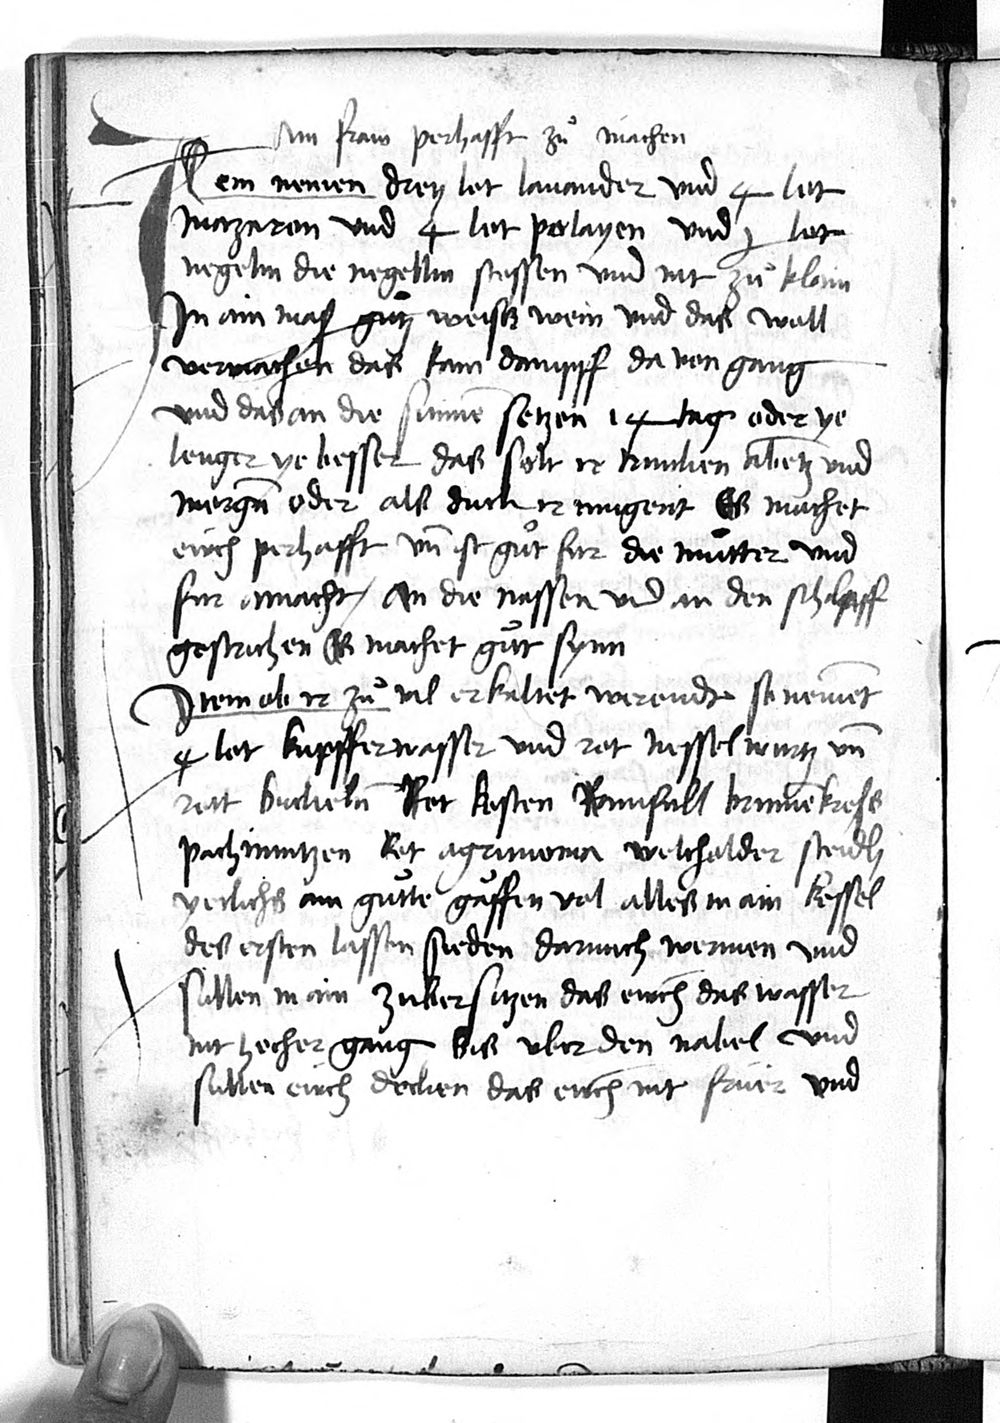 Ain fraw perhafft zů machen
Item nemen dreÿ lot lauander vnd 4 lot
mazaron vnd 4 lot polayen vnd j lot
negelin die negellin stossen vnd nit zů klain
In ain mass gůtz weiss wein vnd das woll
vermachen das kain dampff da von gang
vnd das an die sunne setzen 14 tag oder ye
lenger ye besser das solt ir trincken abetz vnd
morgn̄ oder als dick ir mugent Es machet
eẅch perhafft vn̄ ist gůt fur die můtter vnd
fur amacht / An die nassen vnd an den schlaff
gestrichen Es machet gůt synn
Item ob ir zů vil erkaltet werendt so nement
4 lot kupfferwasser vnd rot nesselwurtz vn̄
rott buckeln̄ Rot kosten Rainfall brunnekress
pachmintzen Rot agrimonia wecholder steidlÿ
yeclichs ain gůtte gůffen vol alles in ain kessel
des ersten lassen sieden darnach wermen vnd
sullen in ain zuber sitzen das eẅch das wasser
nit hecher gang bis vber den nabel vnd
sullen eẅch decken das eẅch nit frier vnd